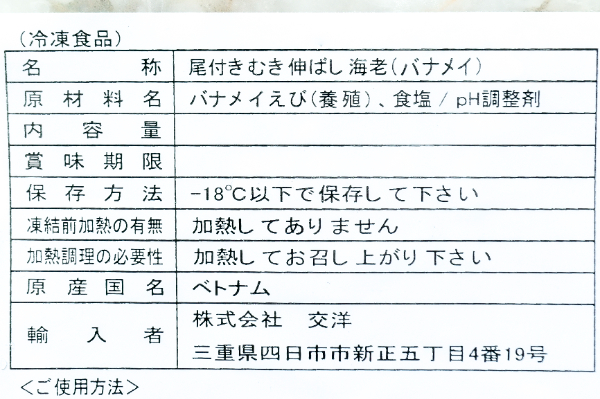 (冷凍食品)
名称 尾付きむき伸ばし海老(バナメイ)
原材料名 バナメイえび(養殖)、食塩/pH調整剤
内容量
賞味期限
保存方法 -18℃以下で保存して下さい
凍結前加熱の有無 加熱してありません
加熱調理の必要性 加熱してお召し上がり下さい
原産国名 ベトナム
輸入者 株式会社 交洋
三重県四日市市新正五丁目4番19号
<ご使用方法>